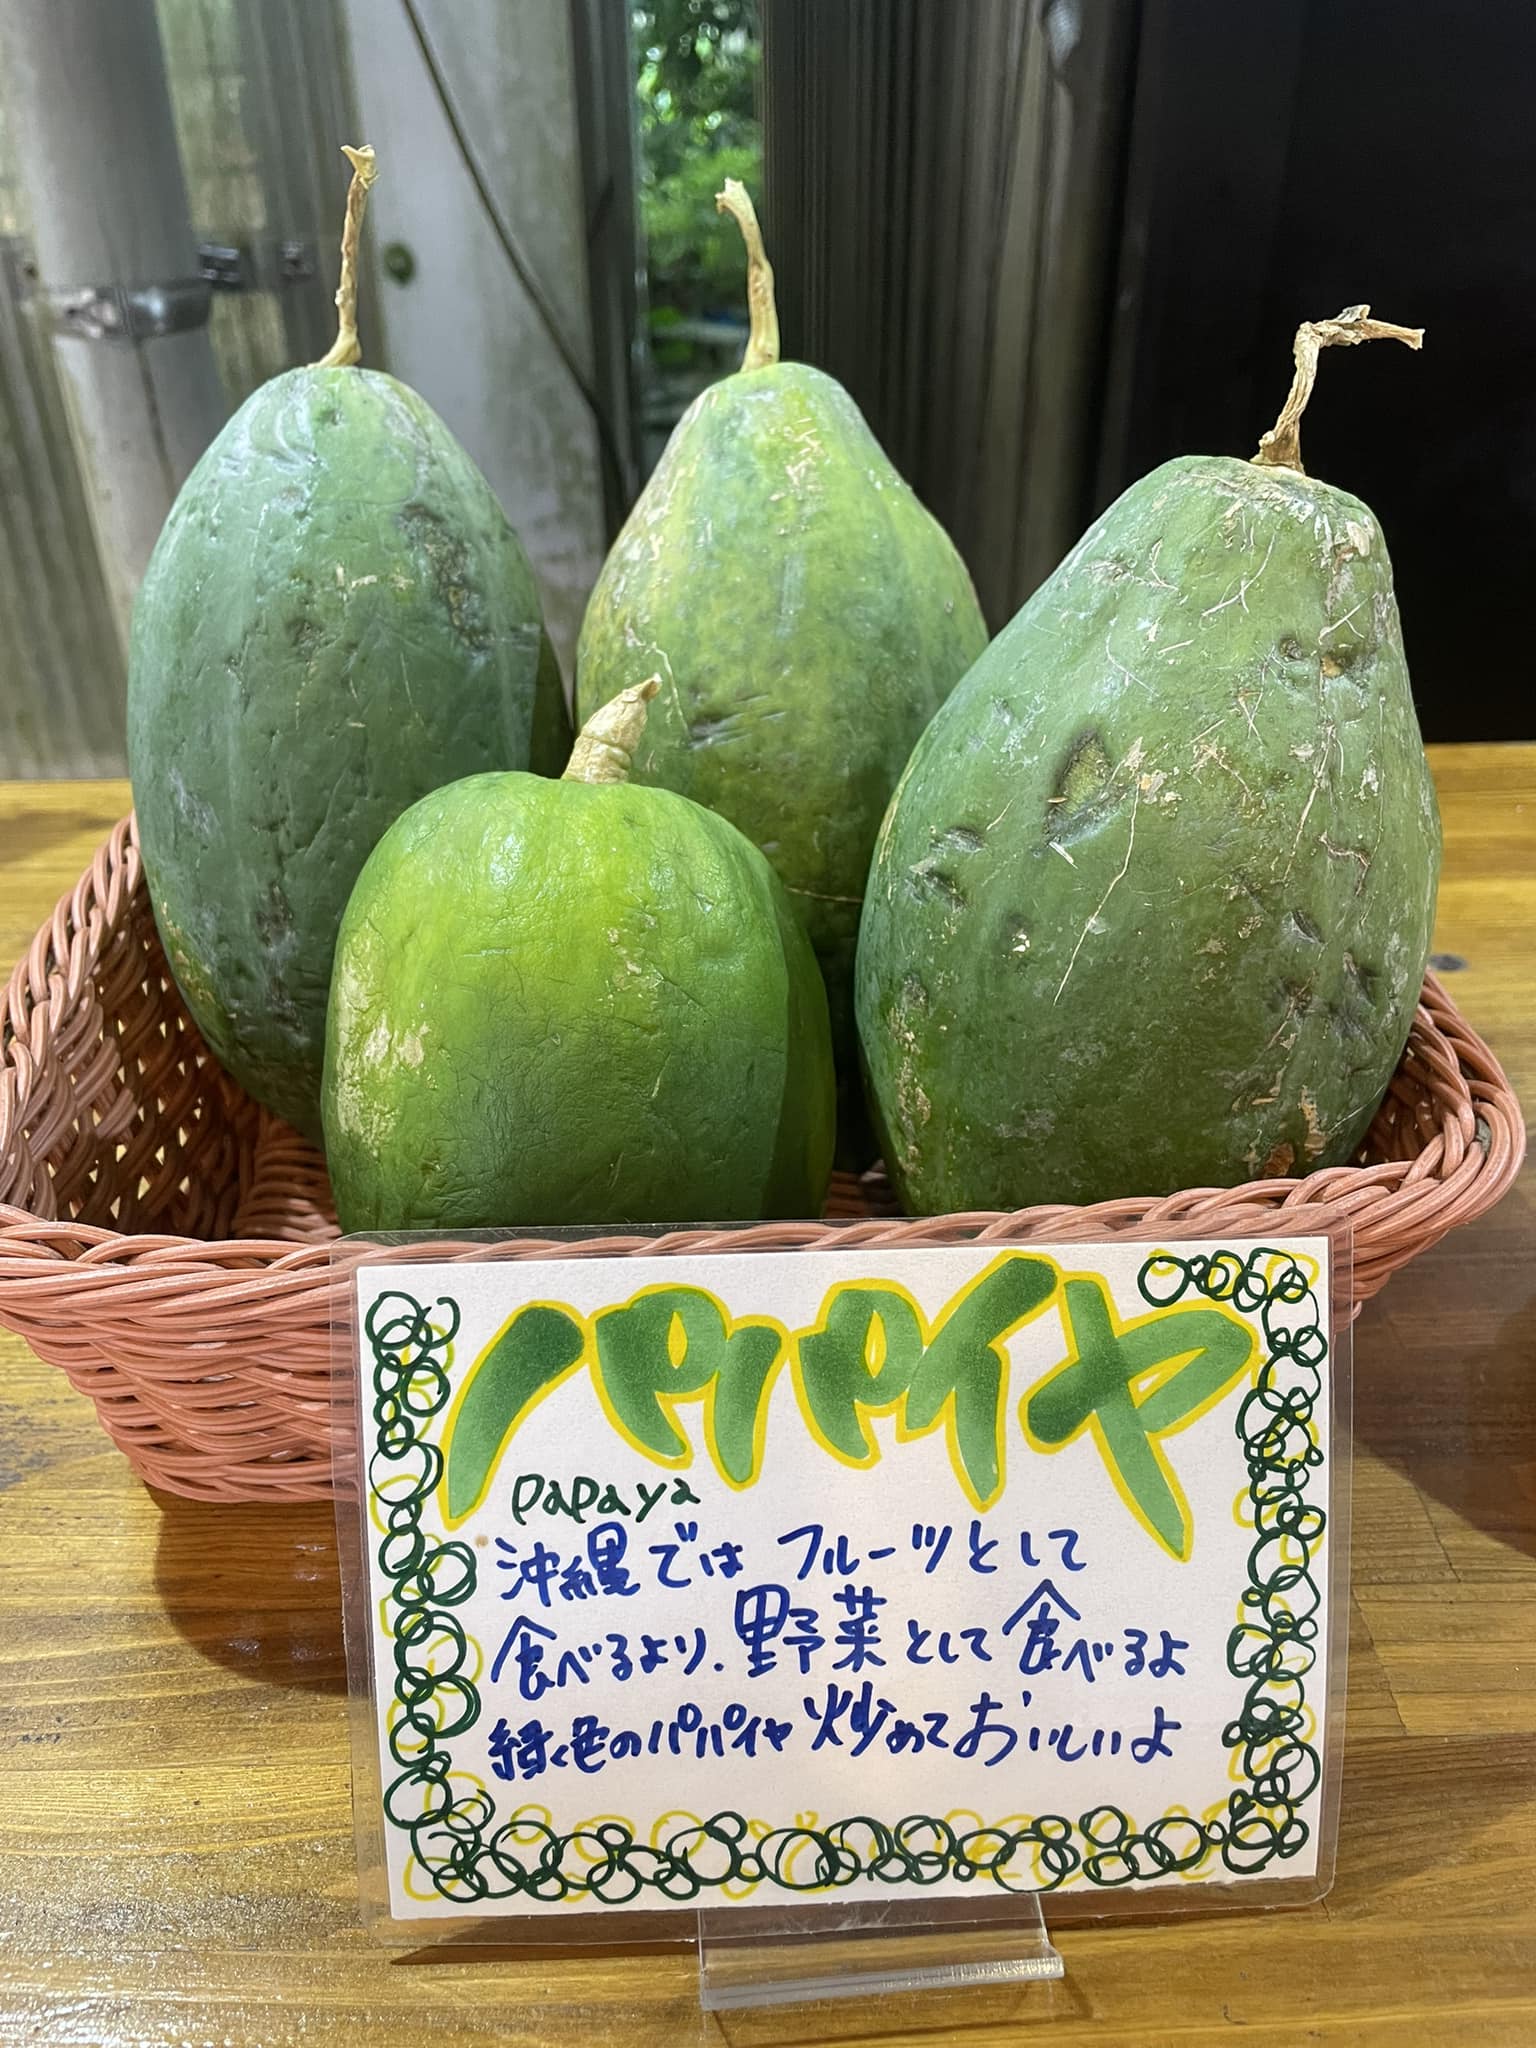 パパイヤ
papaya
沖縄では フルーツとして
食べるより、野菜として食べるよ
緑色のパパイヤ炒めておいしいよ